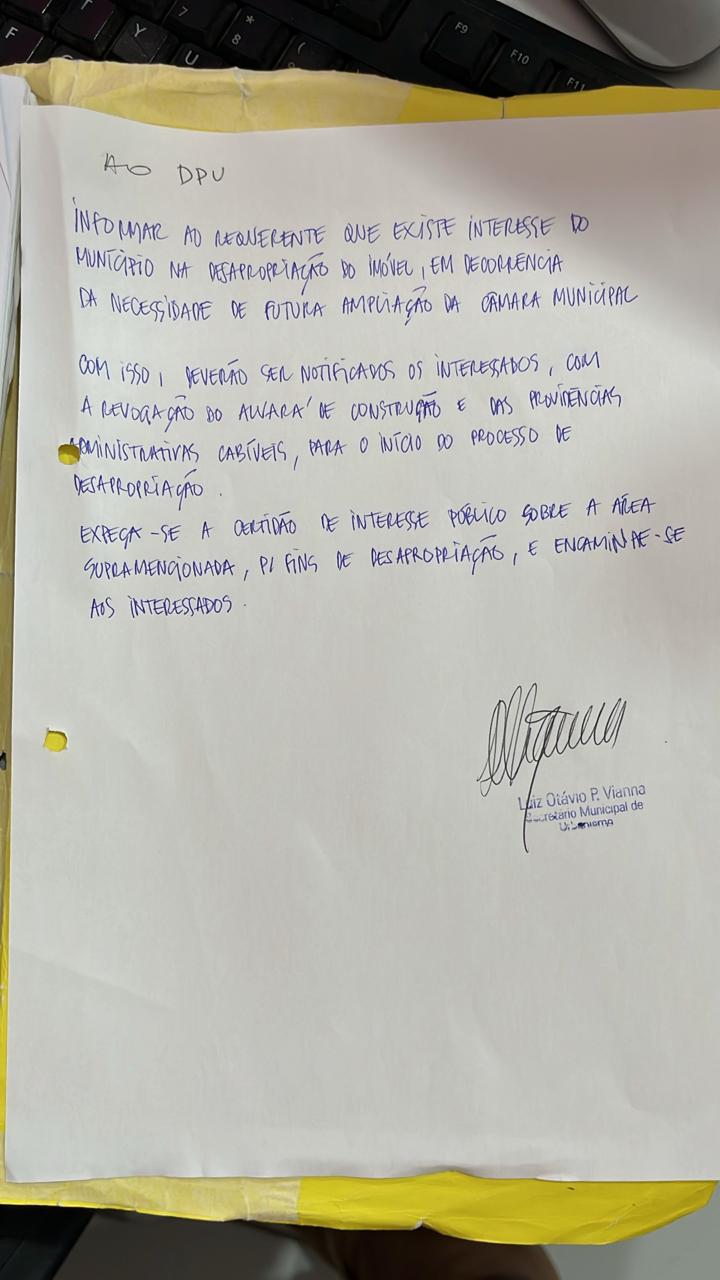 F
T
Y
U
7
*
8
(
F9
F10
F11
AO DPU
INFORMAR AO REQUERENTE QUE EXISTE INTERESSE DO
MUNICÍPIO NA DESAPROPRIAÇÃO DO IMÓVEL, EM DECORRÊNCIA
DA NECESSIDADE DE FUTURA AMPLIAÇÃO DA CÂMARA MUNICIPAL
COM ISSO, DEVERÃO SER NOTIFICADOS OS INTERESSADOS, COM
A REVOGAÇÃO DO ALVARÁ DE CONSTRUÇÃO E DAS PROVIDÊNCIAS
ADMINISTRATIVAS CABÍVEIS, PARA O INÍCIO DO PROCESSO DE
DESAPROPRIAÇÃO.
EXPEÇA-SE A CERTIDÃO DE INTERESSE PÚBLICO SOBRE A ÁREA
SUPRAMENCIONADA, P/ FINS DE DESAPROPRIAÇÃO, E ENCAMINHE-SE
AOS INTERESSADOS.
Luiz Otávio P. Vianna
Secretário Municipal de
Urbanismo